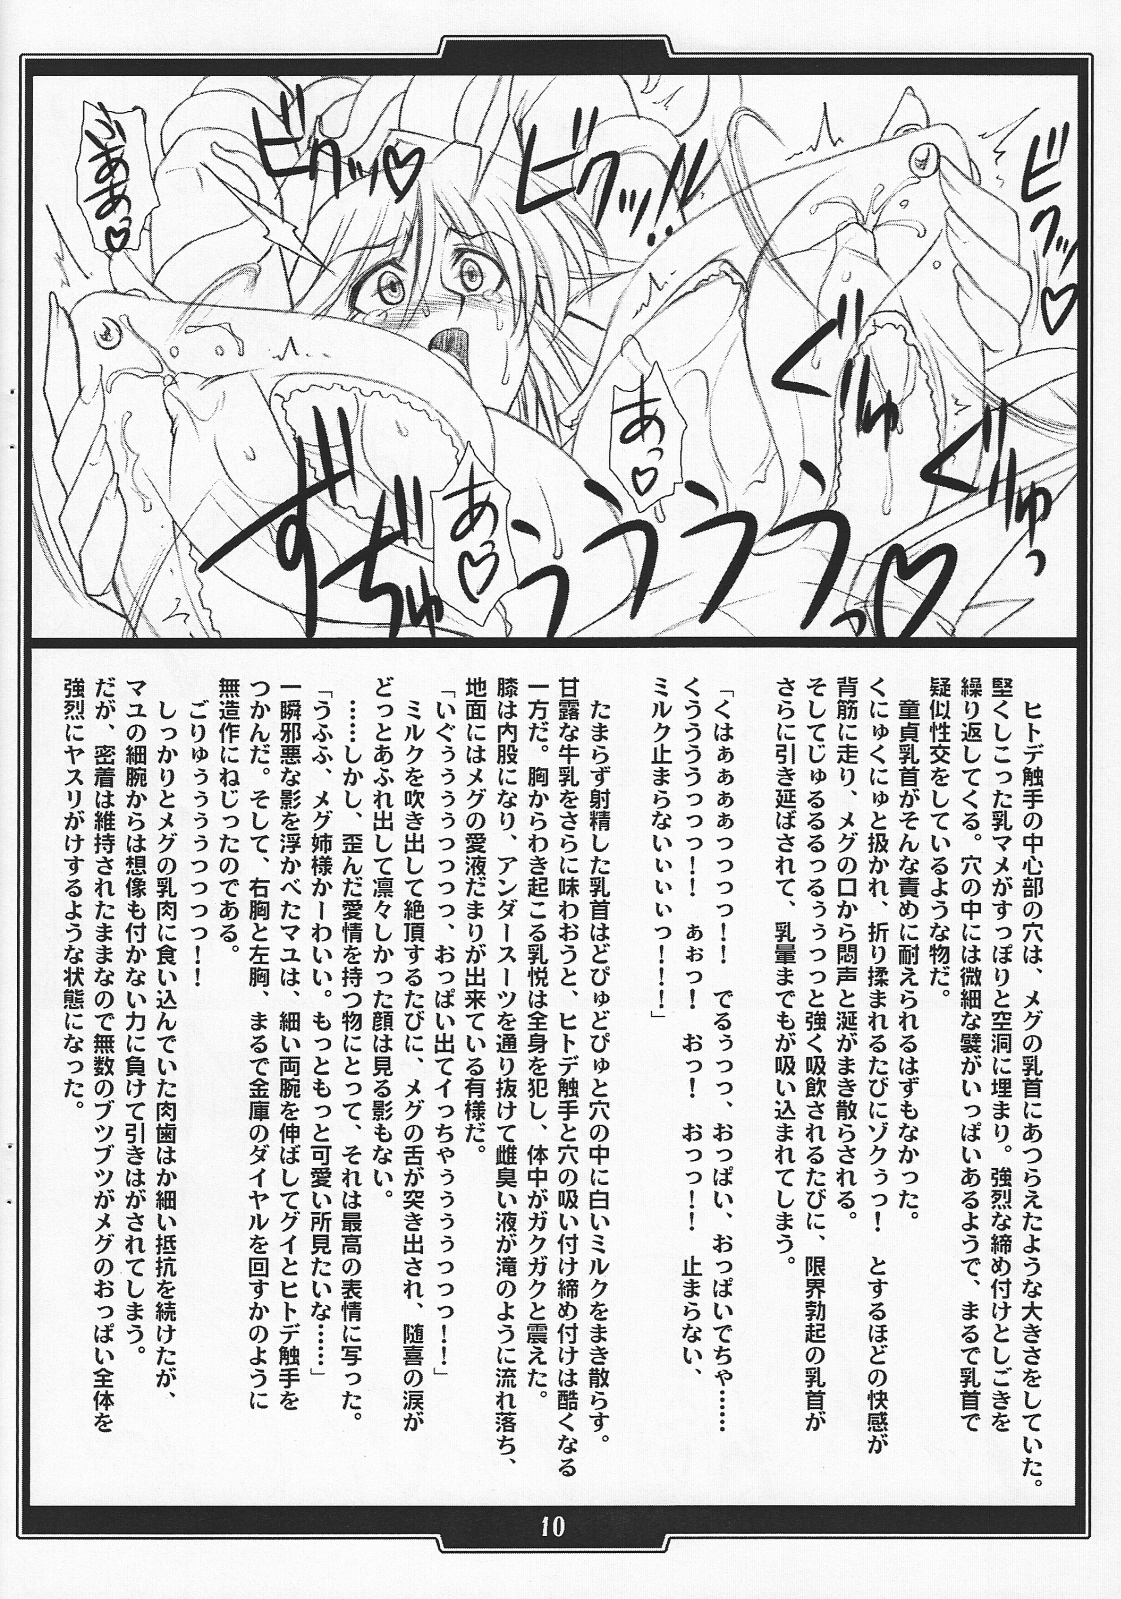 ごああっ♡
ビクッ♡
ビクッ!!
ビクッ♡
ぐりゅ
ぐりゅっ
あっ♡
あっ♡
ずぢゅううううううっ♡
ヒトデ触手の中心部の穴は、メグの乳首にあつらえたような大きさをしていた。
堅くしこった乳マメがすっぽりと空洞に埋まり。強烈な締め付けとしごきを
繰り返してくる。穴の中には微細な襞がいっぱいあるようで、まるで乳首で
疑似性交をしているような物だ。
童貞乳首がそんな責めに耐えられるはずもなかった。
くにゅくにゅと扱かれ、折り揉まれるたびにゾクぅっ!　とするほどの快感が
背筋に走り、メグの口から悶声と涎がまき散らされる。
そしてじゅるるるっるぅぅっっと強く吸飲されるたびに、限界勃起の乳首が
さらに引き延ばされて、乳暈までもが吸い込まれてしまう。
「くはぁぁぁぁっっっっ!!　でるぅっっ、おっぱい、おっぱいでちゃ……
くううううっっっっ!!　ぁぉっ!　おっ!　おっっ!!　止まらない、
ミルク止まらないぃぃぃぃっ!!!!」
たまらず射精した乳首はどぴゅどぴゅと穴の中に白いミルクをまき散らす。
甘露な牛乳をさらに味わおうと、ヒトデ触手と穴の吸い付け締め付けは酷くなる
一方だ。胸からわき起こる乳悦は全身を犯し、体中がガクガクと震えた。
膝は内股になり、アンダースーツを通り抜けて雌臭い液が滝のように流れ落ち、
地面にはメグの愛液だまりが出来ている有様だ。
「いぐぅぅぅぅぅっっっっ、おっぱい出てイっちゃぅぅぅぅっっっ!!」
ミルクを吹き出して絶頂するたびに、メグの舌が突き出され、随喜の涙が
どっとあふれ出して凛々しかった顔は見る影もない。
……しかし、歪んだ愛情を持つ物にとって、それは最高の表情に写った。
「うふふ、メグ姉様かーわいい。もっともっと可愛い所見たいな……」
一瞬邪悪な影を浮かべたマユは、細い両腕を伸ばしてグイとヒトデ触手を
つかんだ。そして、右胸と左胸、まるで金庫のダイヤルを回すかのように
無造作にねじったのである。
ごりゅぅぅぅぅっっっっ!!
しっかりとメグの乳肉に食い込んでいた肉歯はか細い抵抗を続けたが、
マユの細腕からは想像も付かない力に負けて引きはがされてしまう。
だが、密着は維持されたままなので無数のブツブツがメグのおっぱい全体を
強烈にヤスリがけするような状態になった。
10